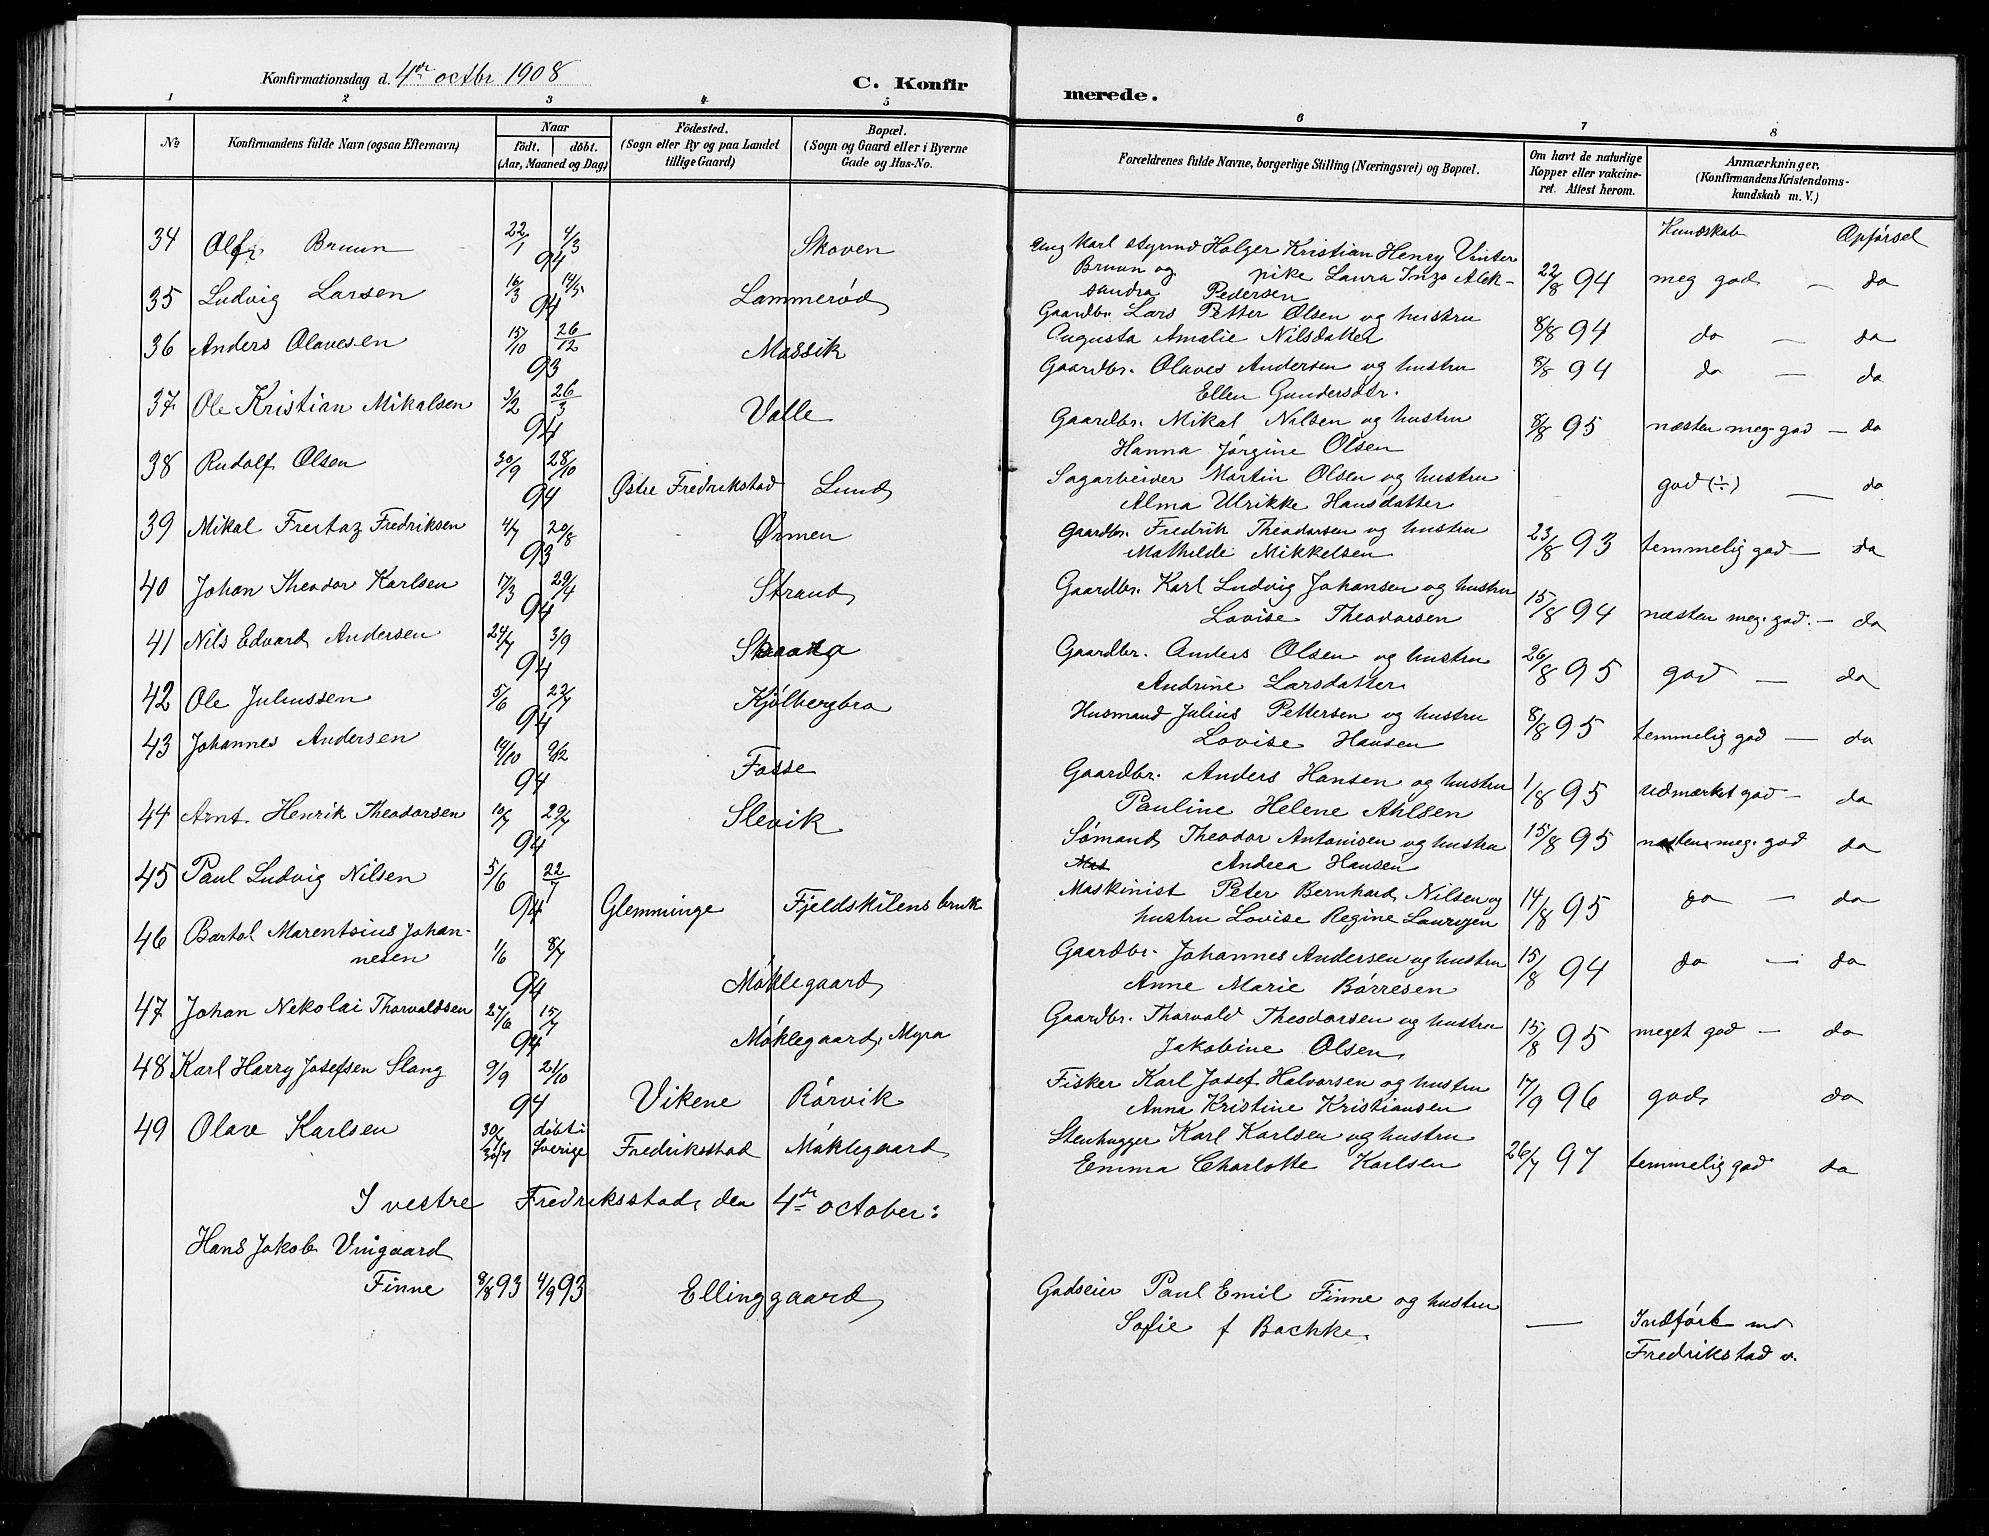 Konfirmationsdag d. 4de octbr 1908
C. Konfirmerede.
1 2 3 4 5 6 7 8
No
Konfirmandens fulde Navn (ogsaa Efternavn)
Naar
födt. döbt.
(Aar, Maaned og Dag)
Födested.
(Sogn eller By og paa Landet
tillige Gaard)
Bopæl.
(Sogn og Gaard eller i Byerne
Gade og Hus-No.
Forældrenes fulde Navne, borgerlige Stilling (Næringsvei) og Bopæl.
Om havt de naturlige
Kopper eller vakcine-
ret. Attest herom.
Anmærkninger,
(Konfirmandens Kristendoms-
kundskab m. V.)
Kundskab Opførsel
34 Olf Bruun 22/1 4/3 94 Skoven
Ung karl styrmd Holger Kristian Henry Vinter
Bruun og pike Laura Inga Alek-
sandra Pedersen
22/8 94 meg god — do
35 Ludvig Larsen 16/3 14/5 94 Lammerød
Gaardbr. Lars Petter Olsen og hustru
Augusta Amalie Nilsdatter
8/8 94 do — do
36 Anders Olavesen 15/10 26/12 93 Massik
Gaardbr. Olaves Andersen og hustru
Ellen Gundersdtr.
8/8 94 do — do
37 Ole Kristian Mikalsen 3/2 26/3 94 Valle
Gaardbr. Mikal Nilsen og hustru
Hanna Jørgine Olsen
8/8 95 næsten meg. god — do
38 Rudolf Olsen 30/9 28/10 94 Østre Fredrikstad Lund
Sagarbeider Martin Olsen og hustru
Alma Ulrikke Hansdatter
god (÷) — do
39 Mikal Freitag Fredriksen 4/7 20/8 93 Ørmen
Gaardbr. Fredrik Theodorsen og hustru
Mathilde Mikkelsen
23/8 93 temmelig god — do
40 Johan Theodor Karlsen 17/3 29/4 94 Strand
Gaardbr. Karl Ludvig Johansen og hustru
Lovise Theodorsen
15/8 94 næsten meg. god. — do
41 Nils Edvard Andersen 24/7 3/9 94
Gaardbr. Anders Olsen og hustru
Andrine Larsdatter
26/8 95 god — do
42 Ole Juliussen 5/6 22/7 94 Kjølbergbro
Husmand Julius Pettersen og hustru
Lovise Hansen
8/8 95 temmelig god — do
43 Johannes Andersen 14/10 9/12 94 Fosse
Gaardbr. Anders Hansen og hustru
Pauline Helene Ahlsen
1/8 95 udmærket god — do
44 Arnt Henrik Theodorsen 10/7 29/7 94 Slevik
Sømand Theodor Antonisen og hustru
Andrea Hansen
15/8 95 næsten meg. god do
45 Paul Ludvig Nilsen 5/6 22/7 94 Glemminge Fjeldskilens bruk
Maskinist Peter Bernhard Nilsen og
hustru Lovise Regine Lauritzen
14/8 95 do — do
46 Bartol Marentsius Johan-
nesen 1/6 8/7 94 Møklegaard
Gaardbr. Johannes Andersen og hustru
Anne Marie Børresen
15/8 94 do — do
47 Johan Nekolai Thorvaldsen 27/6 15/7 94 Møklegaard, Myra
Gaardbr. Thorvald Theodorsen og hustru
Jakobine Olsen
15/8 95 meget god — do
48 Karl Harry Josefsen Slang 9/9 21/10 94 Vikene Rørvik
Fisker Karl Josef Halvorsen og hustru
Anna Kristine Kristiansen
17/9 96 god do
49 Olav Karlsen døbt i Sverige Fredriksstad Møklegaard
Stenhugger Karl Karlsen og hustru
Emma Charlotte Karlsen
26/7 97 temmelig god do
I vestre Fredriksstad, den 4de october:
Hans Jakob Vingaard
Finne 8/8 93 4/9 93 Ellinggaard
Godseier Paul Emil Finne og hustru
Sofie f Bachke.
— Indført
Fredrikstad v.